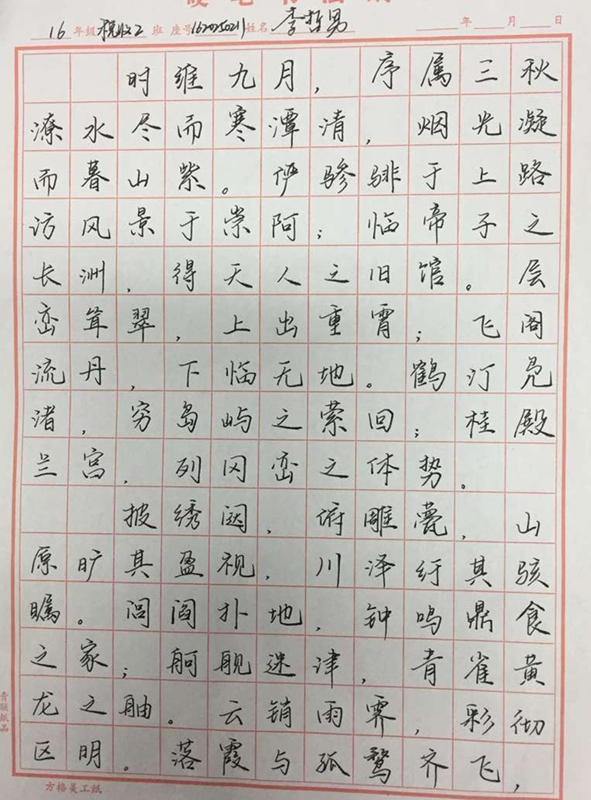 16 年级 税收2 班 座号 姓名 李哲 年 月 日
时维九月，序属三秋
潦水尽而寒潭清，烟光凝
而暮山紫。俨骖騑于上路
访风景于崇阿；临帝子之
长洲，得天人之旧馆。层
峦耸翠，上出重霄；飞阁
流丹，下临无地。鹤汀凫
渚，穷岛屿之萦回；桂殿
兰宫，列冈峦之体势。
披绣闼，俯雕甍，山
原旷其盈视，川泽纡其骇
瞩。闾阎扑地，钟鸣鼎食
之家；舸舰迷津，青雀黄
龙之舳。云销雨霁，彩彻
区明。落霞与孤鹜齐飞，
方格美工纸